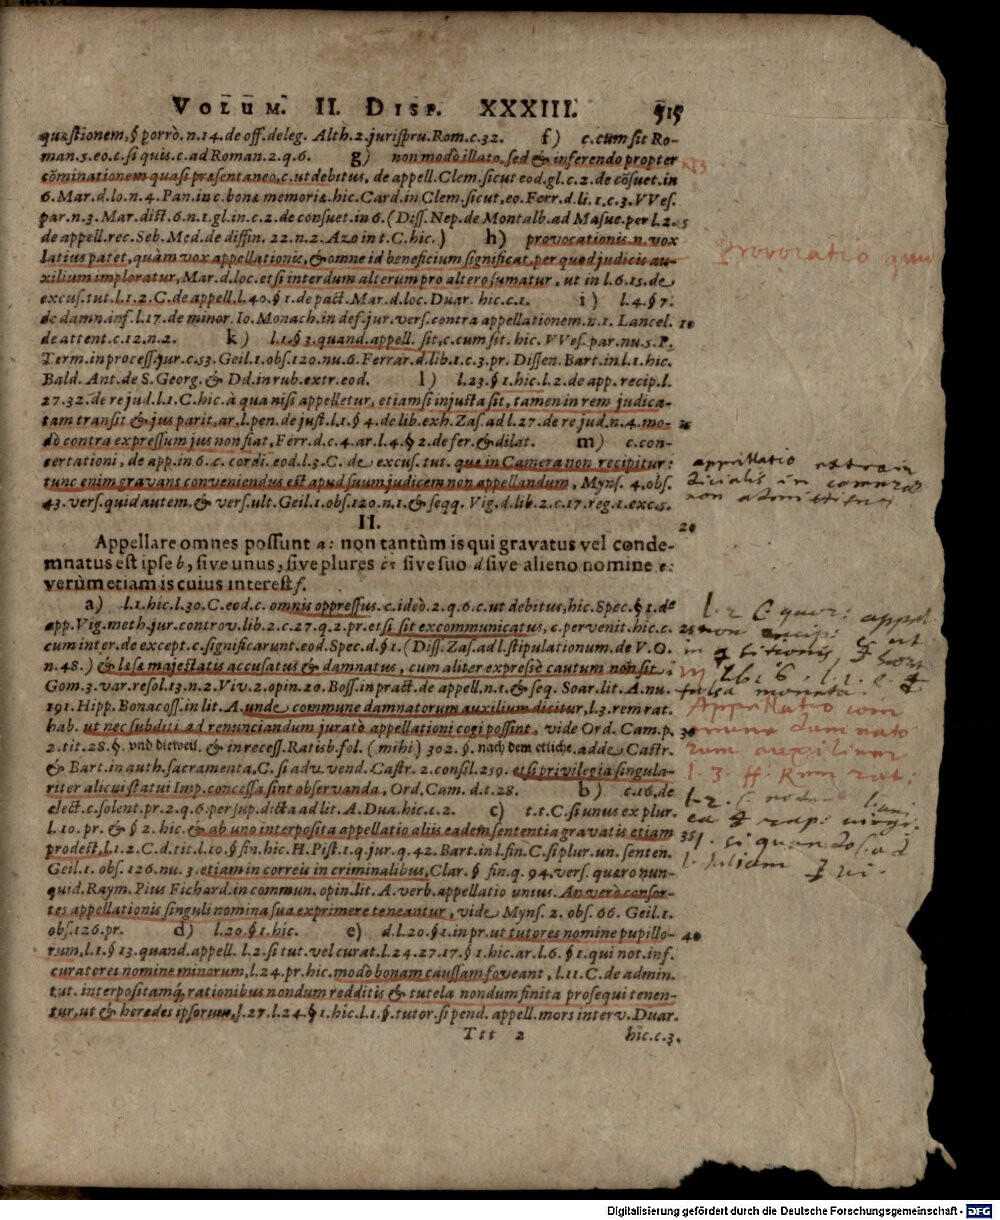 VOLUM. II. DISP. XXXIII. 515
quæstionem, § porrò. n. 14. de off. deleg. Alth. 2. jurispru. Rom. c. 32. f) c. cum sit Ro-
man. 5. eo. c. si quis. c. ad Roman. 2. q. 6. g) non modò illato, sed & inferendo propter
cōminationem quasi præsentaneo, c. ut debitus, de appell. Clem. sicut eod. gl. c. 2. de cōsuet. in
6. Mar. d. lo. n. 4. Pan. in c. bonæ memoriæ. hic. Card. in Clem. sicut, eo. Ferr. d. li. 1. c. 3. VVes.
par. n. 3. Mar. dict. 6. n. 1. gl. in c. 2. de consuet. in 6. (Diss. Nep. de Montalb. ad Masue. per l. 2. 5
de appell. rec. Seb. Med. de diffin. 22. n. 2. Azo in t. C. hic.) h) provocationis. n. vox
latius patet, quàm vox appellationis, & omne id beneficium significat, per quod judicis au-
xilium imploratur, Mar. d. loc. etsi interdum alterum pro altero sumatur, ut in l. 6. 15. de
excus. tut. l. 1. 2. C. de appell. l. 40. § 1. de pact. Mar. d. loc. Duar. hic. c. 1. i) l. 4. § 7.
de damn. inf. l. 17. de minor. Io. Monach. in def. jur. vers. contra appellationem. n. 1. Lancel. 10
de attent. c. 12. n. 2. k) l. 1. § 3. quand. appell. sit, c. cum sit. hic. VVes. par. nu. 5. P.
Term. in process. jur. c. 53. Geil. 1. obs. 120. nu. 6. Ferrar. d. lib. 1. c. 3. pr. Dissen. Bart. in l. 1. hic.
Bald. Ant. de S. Georg. & Dd. in rub. extr. eod. l) l. 23. § 1. hic. l. 2. de app. recip. l.
27. 32. de re jud. l. 1. C. hic. à qua nisi appelletur, etiamsi injusta sit, tamen in rem judica-
tam transit & jus parit, ar. l. pen. de just. l. 1. § 4. de lib. exh. Zas. ad l. 27. de re jud. n. 4. mo-
dò contra expressum jus non fiat, Ferr. d. c. 4. ar. l. 4. § 2. de fer. & dilat. m) c. con-
sertationi, de app. in 6. c. cordi. eod. l. 3. C. de excus. tut. quæ in Camera non recipitur:
tunc enim gravans conveniendus est apud suum judicem non appellandum, Myns. 4. obs.
43. vers. quid autem. & vers. ult. Geil. 1. obs. 120. n. 1. & seqq. Vig. d. lib. 2. c. 17. reg. 1. exc. 5.
appellatio extraju
dicialis in camera
non admittitur
II. 20
Appellare omnes possunt a: non tantùm is qui gravatus vel conde-
mnatus est ipse b, sive unus, sive plures c: sive suo d sive alieno nomine e:
verùm etiam is cuius interest f.
a) l. 1. hic. l. 30. C. eod. c. omnis oppressus. c. ideò. 2. q. 6. c. ut debitus, hic. Spec. § 1. de
app. Vig. meth. jur. controv. lib. 2. c. 27. q. 2. pr. etsi sit excommunicatus, c. pervenit. hic. c. 25
cum inter. de except. c. significarunt. eod. Spec. d. § 1. (Diss. Zas. ad l. stipulationum. de V. O.
n. 48.) & læsæ majestatis accusatus & damnatus, cum aliter expressè cautum non sit,
Gom. 3. var. resol. 13. n. 2. Viv. 2. opin. 20. Boss. in pract. de appell. n. 1. & seq. Soar. lit. A. nu.
191. Hipp. Bonacoss. in lit. A. unde commune damnatorum auxilium dicitur, l. 3. rem rat.
hab. ut nec subditi ad renunciandum juratò appellationi cogi possint, vide Ord. Cam. p. 30
2. tit. 28. §. und dieweil. & in recess. Ratisb. fol. (mihi) 302. §. nach dem etliche. adde Castr.
& Bart. in auth. sacramenta, C. si adv. vend. Castr. 2. consil. 259. etsi privilegia singula-
riter alicui statui Imp. concessa sint observanda, Ord. Cam. d. t. 28. b) c. 16. de
elect. c. solent. pr. 2. q. 6. per sup. dicta ad lit. A. Dua. hic. c. 2. c) t. t. C. si unus ex plur.
l. 10. pr. & § 2. hic. & ab uno interposita appellatio aliis eadem sententia gravatis etiam 35
prodest, l. 1. 2. C. d. tit. l. 10. § fin. hic. H. Pist. 1. q. jur. q. 42. Bart. in l. fin. C. si plur. un. senten.
Geil. 1. obs. 126. nu. 3. etiam in correis in criminalibus, Clar. § fin. q. 94. vers. quæro nun-
quid. Raym. Pius Fichard. in commun. opin. lit. A. verb. appellatio unius. An verò consor-
tes appellationis singuli nomina sua exprimere teneantur, vide Myns. 2. obs. 66. Geil. 1.
obs. 126. pr. d) l. 20. § 1. hic. e) d. l. 20. § 1. in pr. ut tutores nomine pupillo- 40
rum, l. 1. § 13. quand. appell. l. 2. si tut. vel curat. l. 24. 27. 17. § 1. hic. ar. l. 6. § 1. qui not. inf.
curatores nomine minorum, l. 24. pr. hic. modò bonam caussam foveant, l. 11. C. de admin.
tut. interpositamq́, rationibus nondum redditis & tutela nondum finita prosequi tenen-
tur, ut & heredes ipsorum, l. 27. l. 24. § 1. hic. l. 1. §. tutor. si pend. appell. mors interv. Duar.
Ttt 2 hic. c. 3.
Provocatio
Appellatio com
muna damnato
rum auxilium
l. 3. ff. Rem rat:
Digitalisierung gefördert durch die Deutsche Forschungsgemeinschaft - DFG